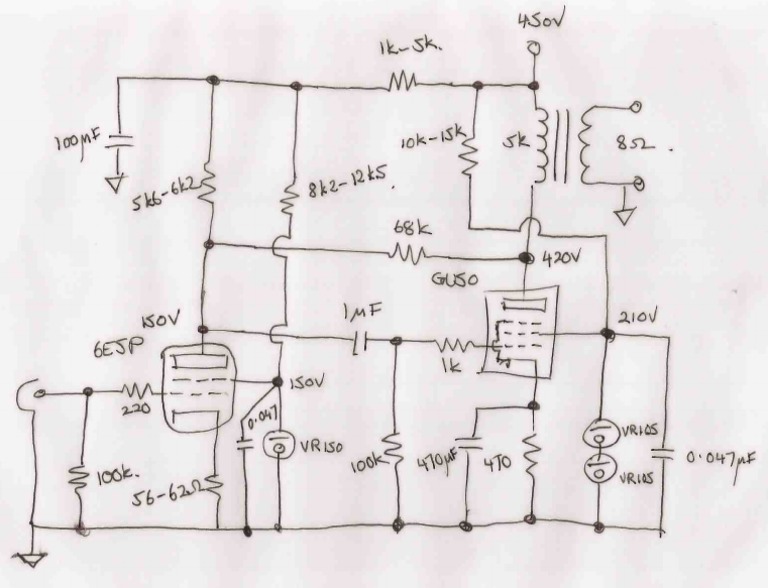 450V
1k-5k.
100µF
10k-15k
5k
8Ω.
5k6-6k2
8k2-12k5.
68k
420V
GU50
1µF
150V
210V
6EJP
1k
150V
220
0.047
VR150
VR105
100k.
100k
470µF
470
VR105
0.047µF
56-62Ω